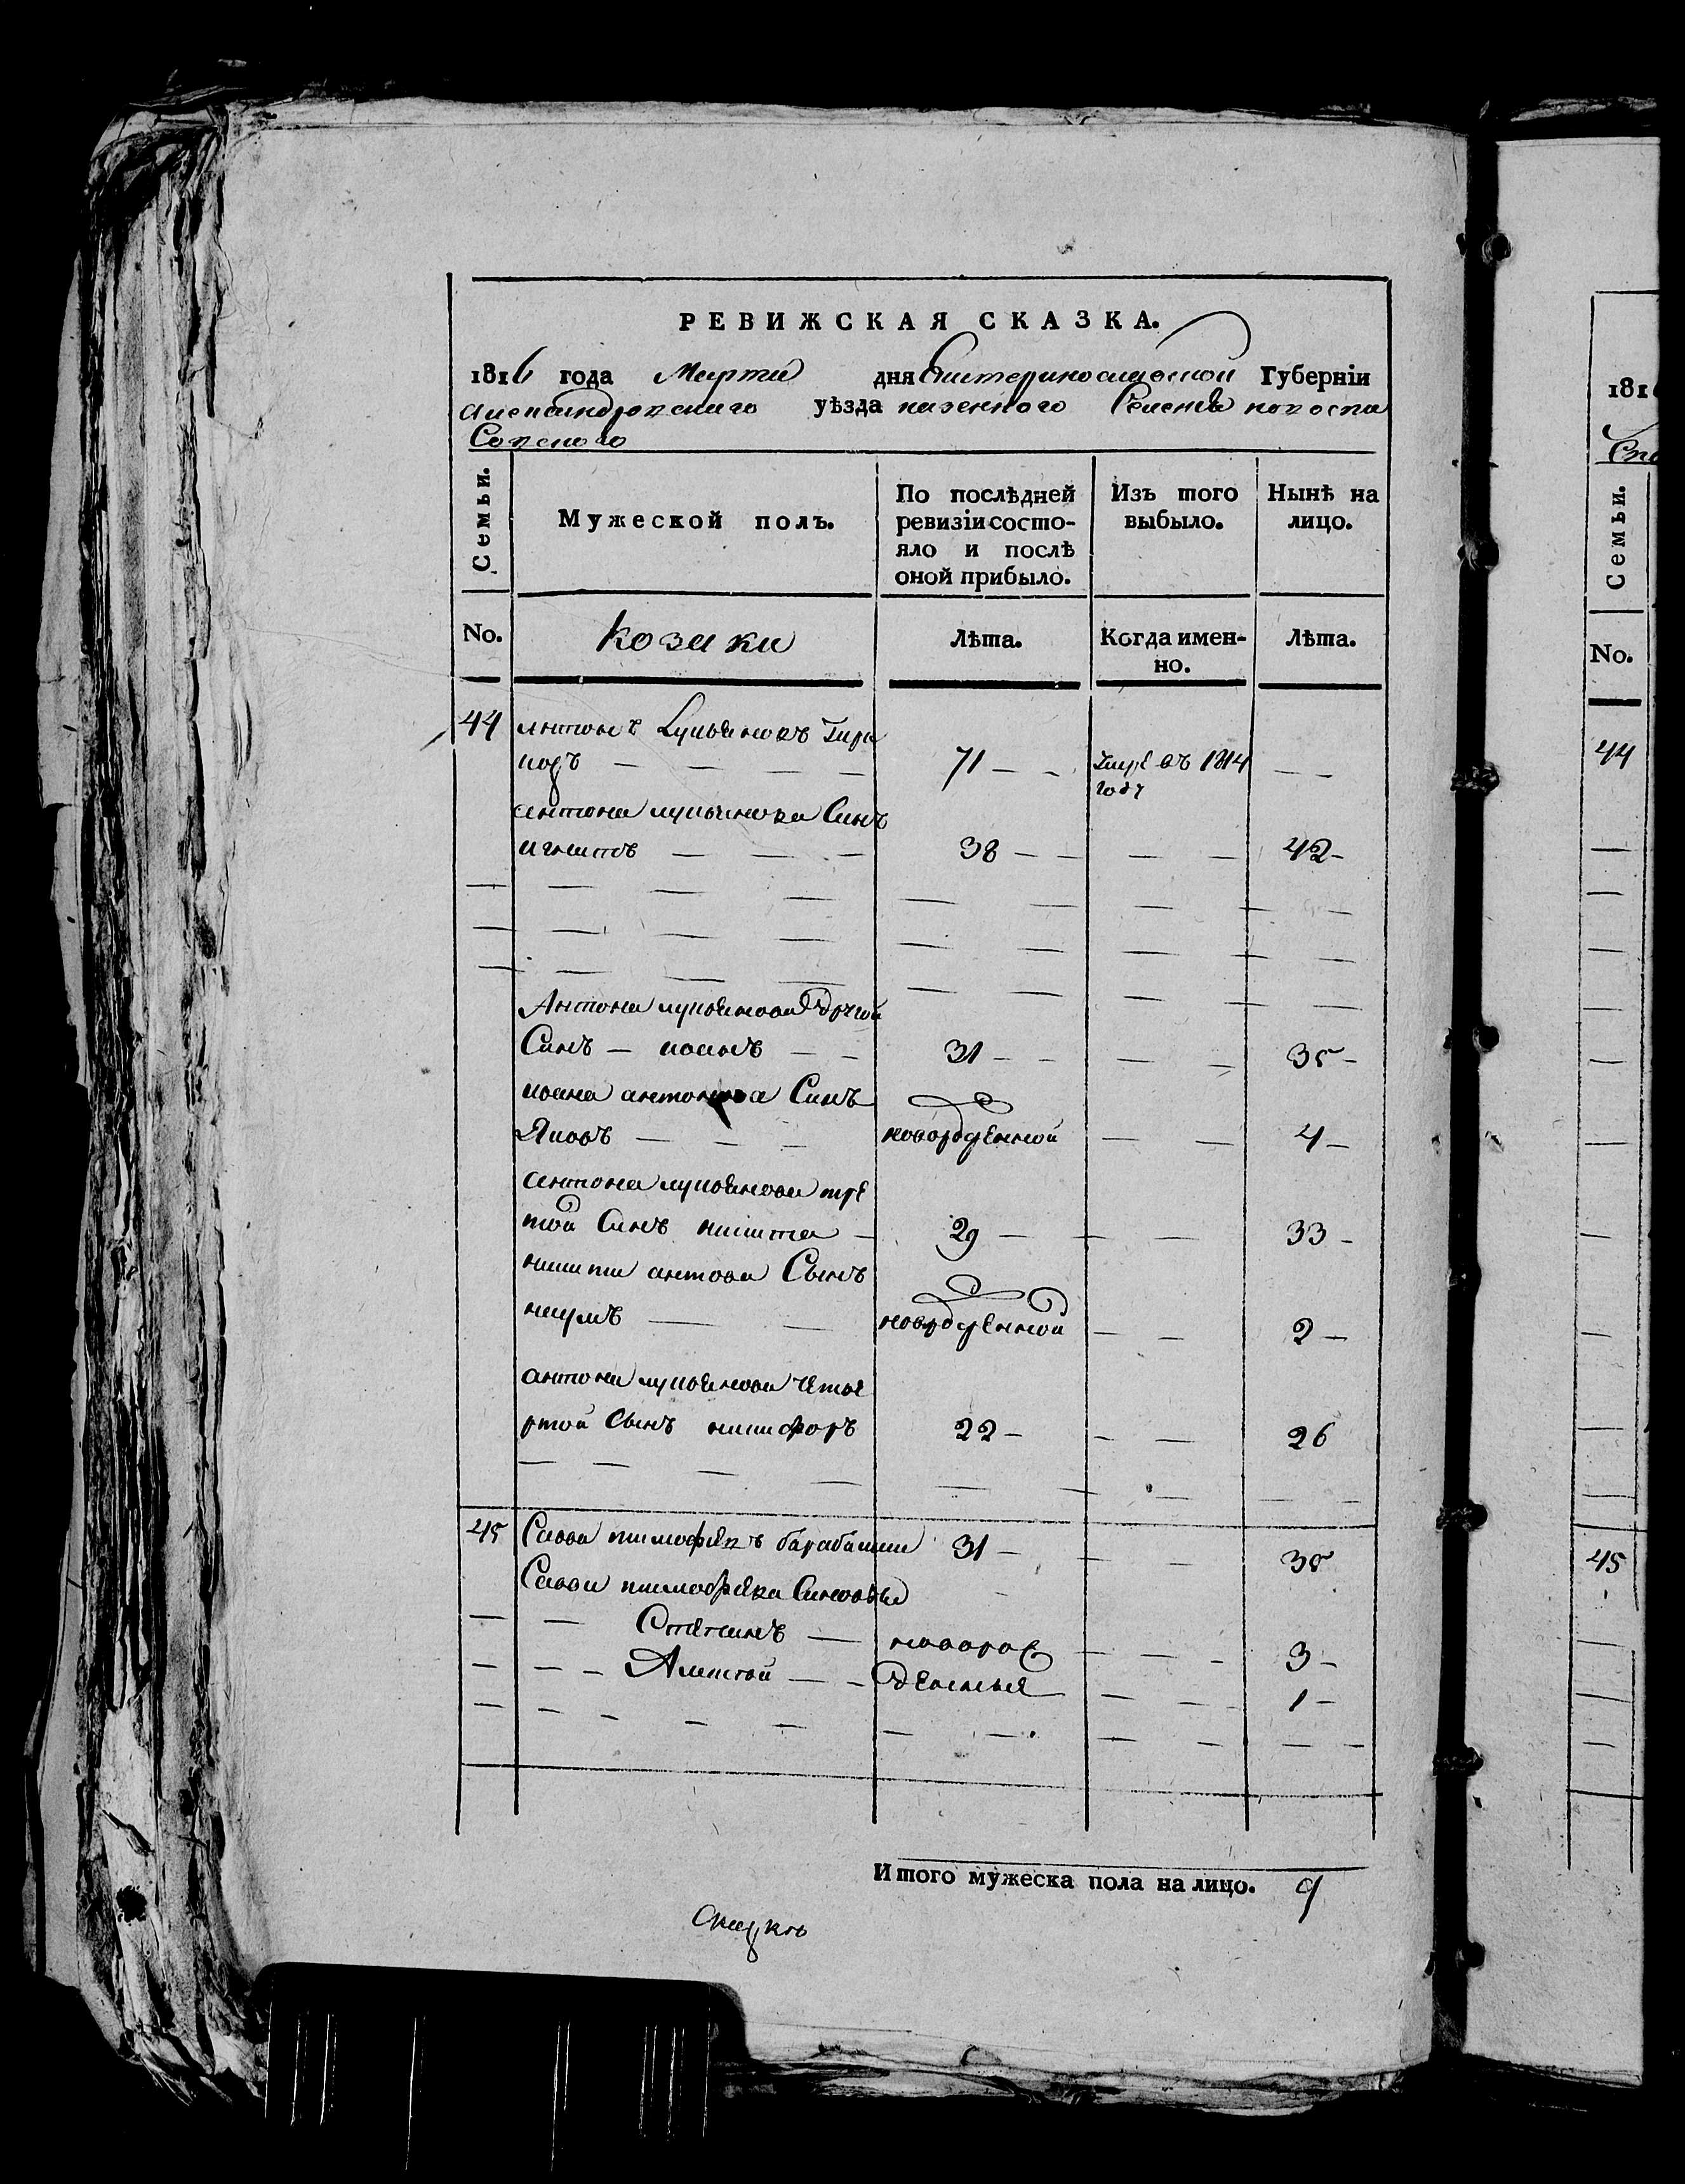 РЕВИЖСКАЯ СКАЗКА.
1816 года Марта дня Екатеринославской Губерніи
Александровскаго уѣзда казенного Селенія новоспа
Совского
Семьи.
Мужеской полъ.
По послѣдней ревизіи состо-
яло и послѣ
оной прибыло.
Изъ того выбыло.
Нынѣ на лицо.
No.
Козаки
Лѣта.
Когда имен-
но.
Лѣта.
44 Антонъ Лукьяновъ
71 — — Умре въ 1814 — —
году
антона лукьянова Синъ
игнатъ — — — 38 — — — — 42 —
Антона лукьянова другой
Синъ — иоанъ — — 31 — — — — 35 —
иоана антонова Синъ
Яковъ — — — новорожденной — — 4 —
антона лукьянова тре
той Синъ никита — 29 — — — 33 —
никити антова Сынъ
наумъ — — новорожденной — — 2 —
антона лукьянова четве
ртой Сынъ никифоръ 22 — — — 26
45 Савва тимофѣевъ барабаши 31 — — — 35
Савви тимофѣева Синовья
— — Степанъ — новорож — — — 3 —
— — — Алексѣй — — денныя — — — 1 —
Итого мужеска пола на лицо. 9
1816
Спа
Семьи.
No.
44
45